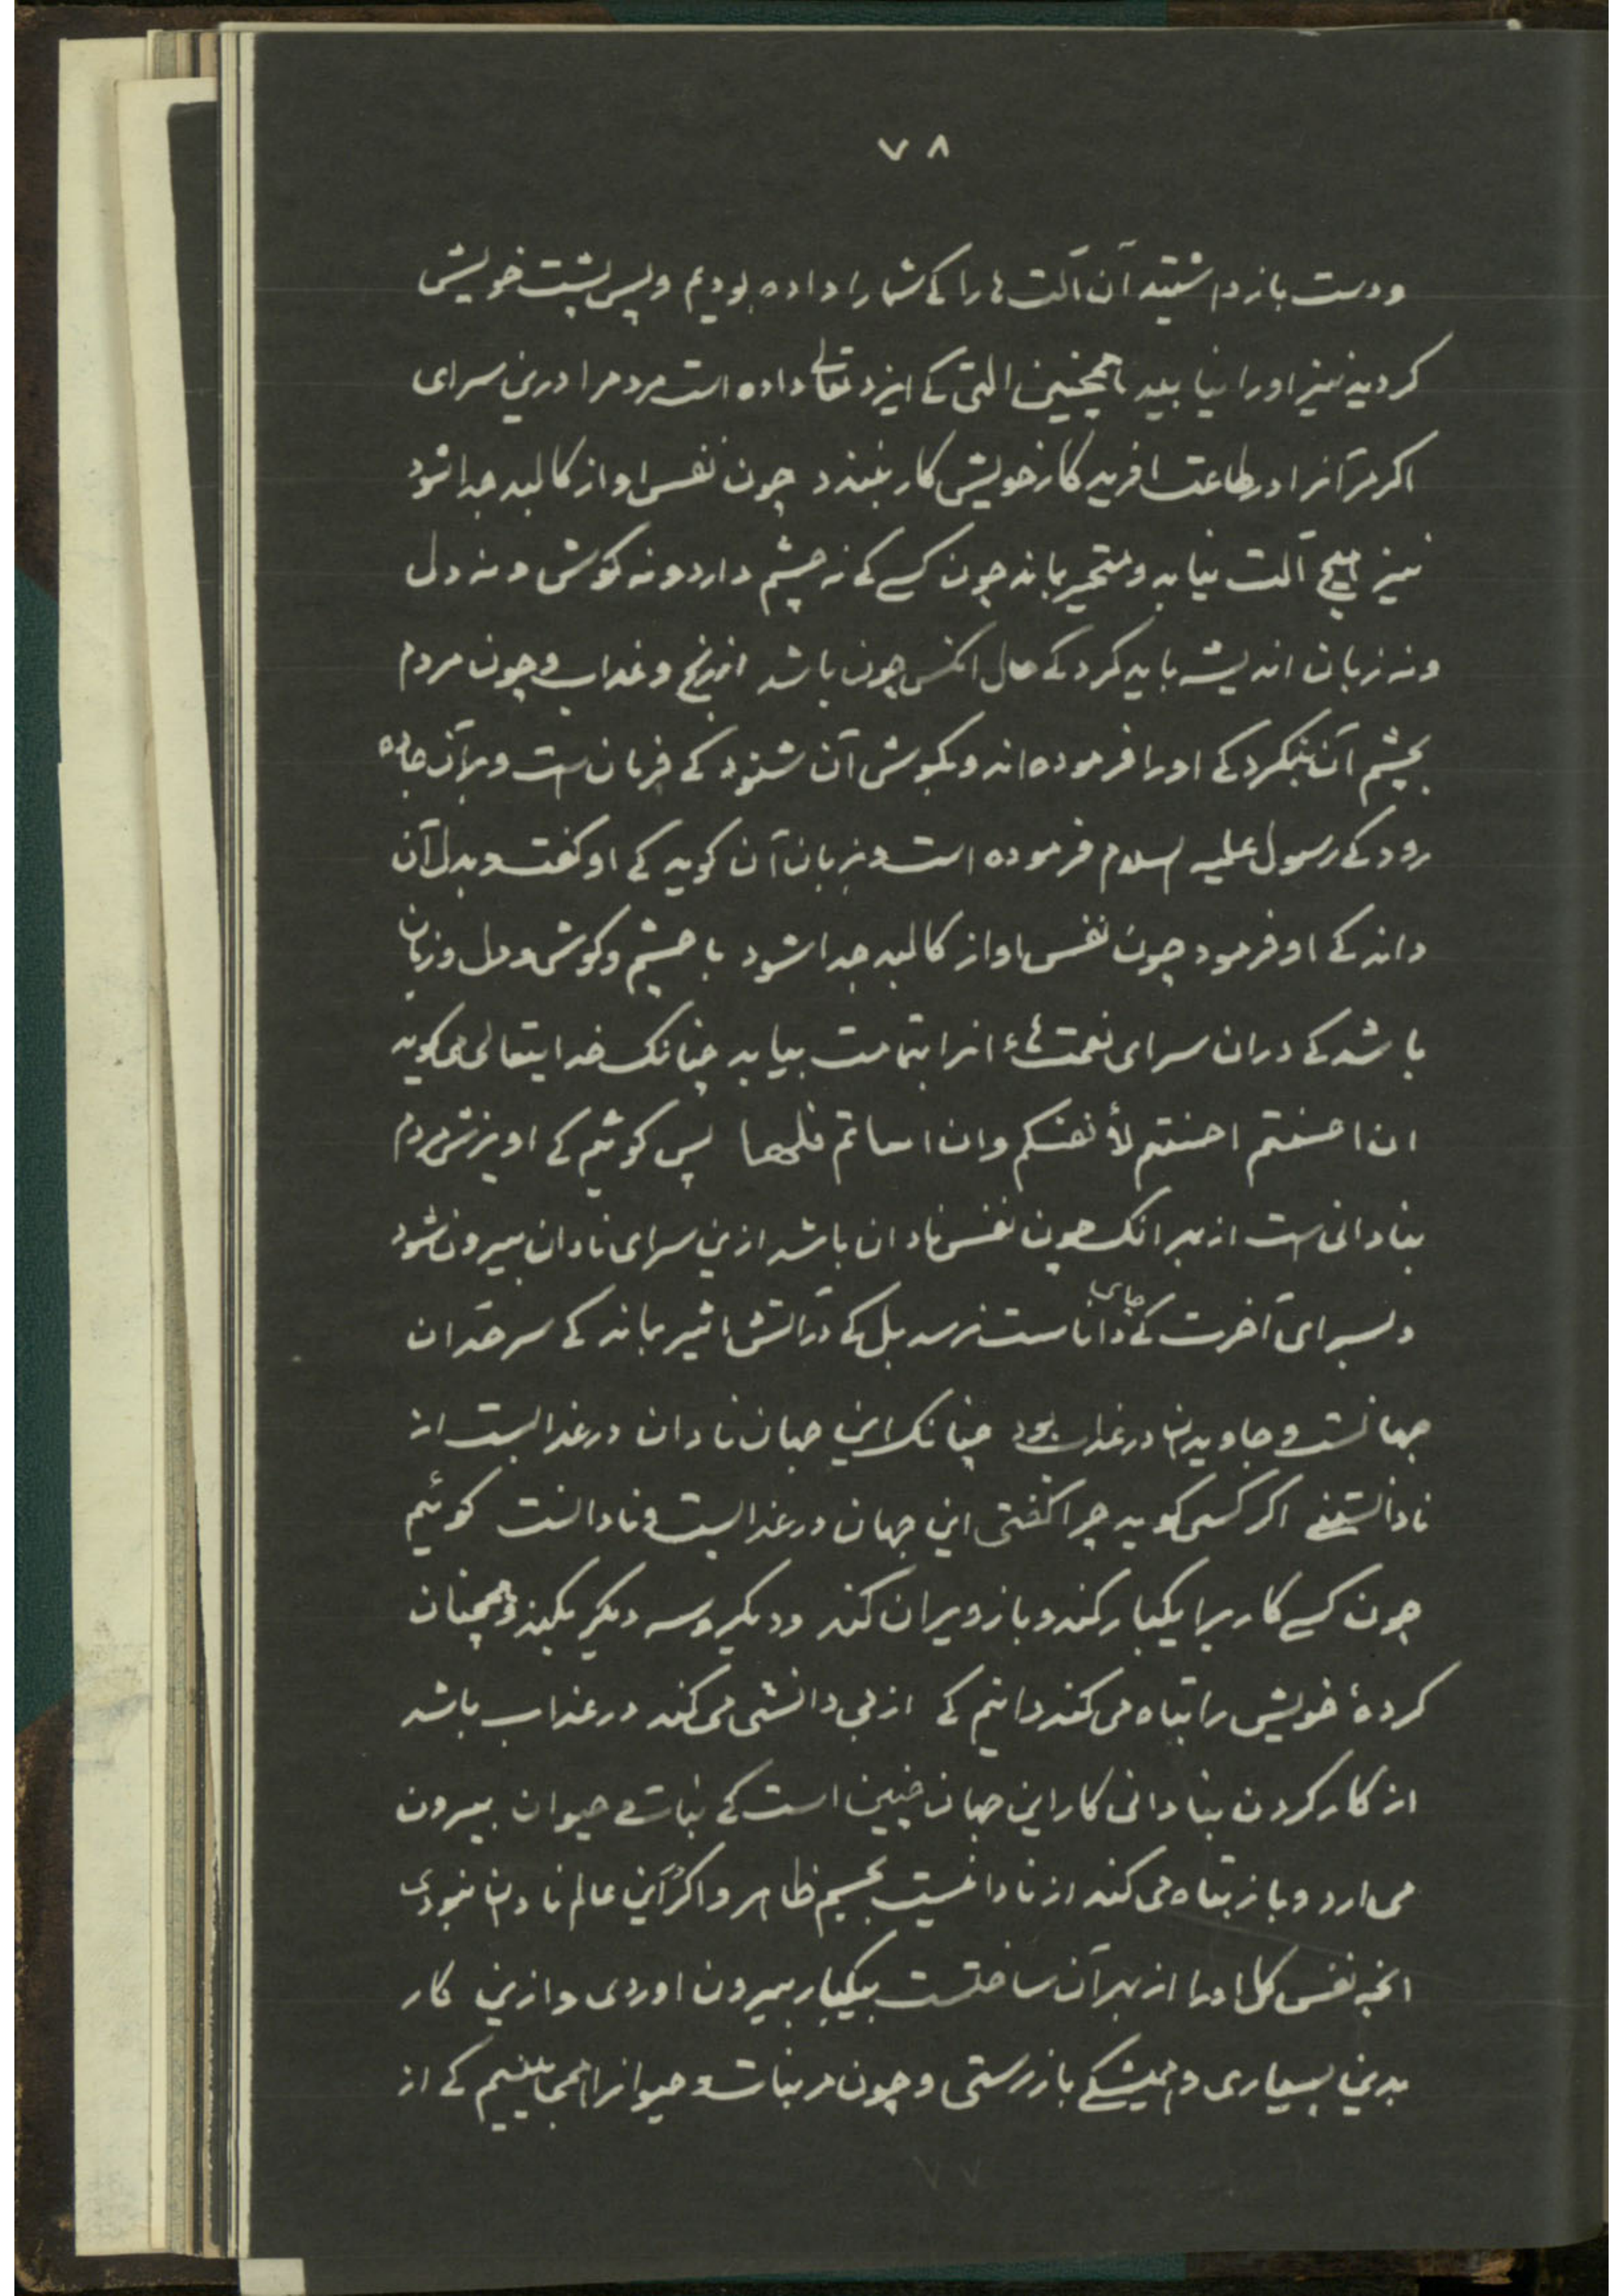 ۷۸
ودست بازداشتید آن آلت ها را کے شما را داده بودیم وپس پشت خویش
کردید نیز اورا نیابید همچنین التی کے ایزد تعالی داده است مردم را درین سرای
اکر مر آنرا در طاعت افریدکار خویش کار نبندد چون نفس او از کالبد جدا شود
نیز هیچ آلت نیابد ومتحیر بماند چون کسے کے نه چشم دارد ونه کوش ونه دل
ونه زبان اندیشه باید کرد کے حال انکس چون باشد از رنج وعذاب وچون مردم
بچشم آن نیکرد کے اورا فرموده اند وبکوش آن شنود کے فرمان است وبرآن جاده
رود کے رسول علیه السلام فرموده است وبزبان آن کوید کے او کفت وبدل آن
داند کے او فرمود چون نفس او از کالبد جدا شود با چشم وکوش ودل وزبان
باشد کے دران سرای نعمت هاء انرا بتمامت بیابد چنانک خدایتعالی می کوید
ان احسنتم احسنتم لأنفسکم وان اساتم فلها پس کوئیم کے اویزش مردم
بنادانی است از بهر انک چون نفس نادان باشد ازین سرای نادان بیرون شود
وبسرای آخرت کے جای داناست نرسد بل کے در آتش اثیر بماند کے سرحد ان
جهانست وجاویدان در عذاب بود چنانک این جهان نادان در عذابست از
نادانستنے اکر کسی کوید چرا کفتی این جهان در عذابست ونادانست کوئیم
چون کسے کاریرا یکبار کند وباز ویران کند ودیکر وسه دیکر بکند وهمچنان
کردهٔ خویش را تباه می کند دانیم کے از بی دانشی می کند در عذاب باشد
از کار کردن بنادانی کار این جهان چنین است کے نبات وحیوان بیرون
می ارد وباز تباه می کند از نادانیست بچشم ظاهر واکر این عالم نادان نبودی
انچه نفس کل اورا از بهر آن ساختست بیکبار بیرون اوردی وازین کار
بدین بسیاری وهمیشکے باز رستی وچون مر نبات وحیوانرا همی بینیم کے از